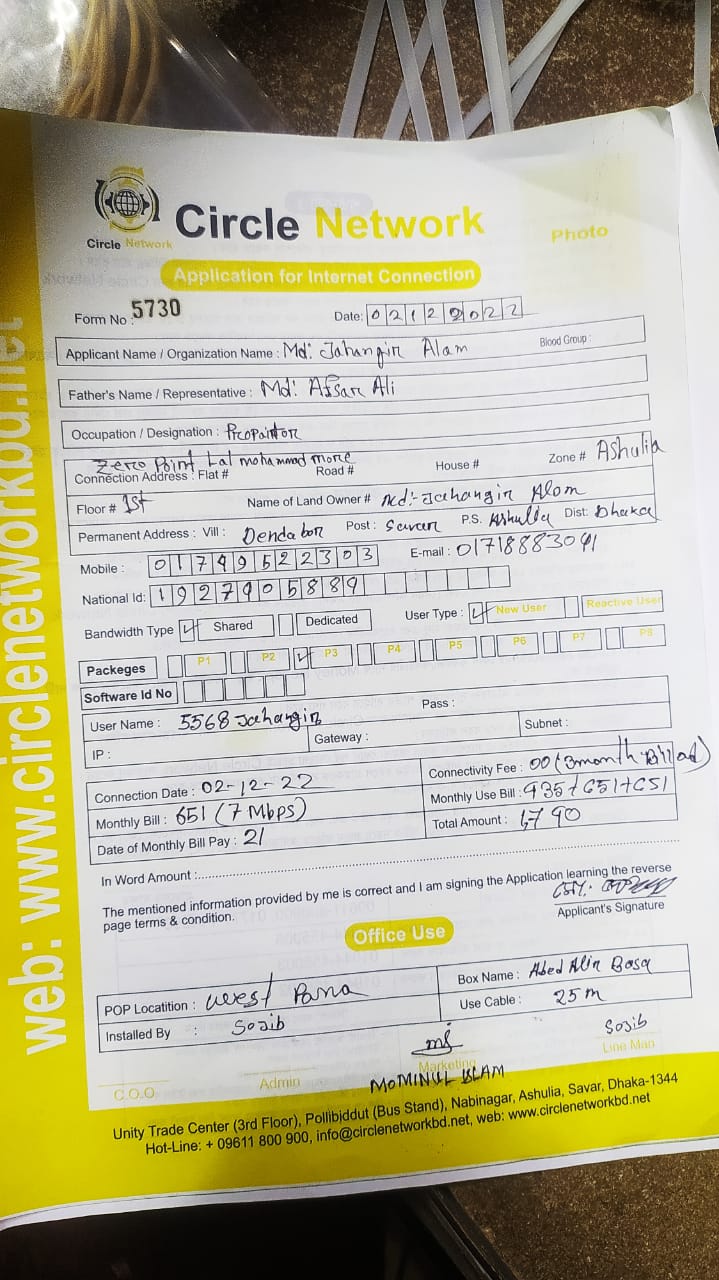 Circle Network
Circle Network
Photo
Application for Internet Connection
Form No : 5730
Date: 02122022
Applicant Name / Organization Name : Md: Jahangir Alam
Blood Group :
Father's Name / Representative : Md: Afsar Ali
Occupation / Designation : Propaitor
Zero Point Lal mohammad more
Connection Address : Flat # Road # House # Zone # Ashulia
Floor # 1st Name of Land Owner # Md:-Jahangir Alom
Permanent Address : Vill : Dendabor Post : Savar P.S. Ashulia Dist: Dhaka
Mobile : 01749522303 E-mail : 01718883041
National Id: 1927905889
Bandwidth Type Shared Dedicated User Type : New User Reactive User
Packeges P1 P2 P3 P4 P5 P6 P7 P8
Software Id No
User Name : 5568 Jahangir Pass :
IP : Gateway : Subnet :
Connection Date : 02-12-22 Connectivity Fee : 00 (3month Bill ad)
Monthly Bill : 651 (7 Mbps) Monthly Use Bill : 935+651+651
Date of Monthly Bill Pay : 21 Total Amount : 1,790
In Word Amount :
The mentioned information provided by me is correct and I am signing the Application learning the reverse
page terms & condition.
Applicant's Signature
Office Use
POP Locatition : West Para Box Name : Abed Alir Basa
Installed By : Sojib Use Cable : 25 m
C.O.O. Admin Marketing Sojib Line Man
MOMINUL ISLAM
Unity Trade Center (3rd Floor), Pollibiddut (Bus Stand), Nabinagar, Ashulia, Savar, Dhaka-1344
Hot-Line: + 09611 800 900, info@circlenetworkbd.net, web: www.circlenetworkbd.net
web: www.circlenetworkbd.net